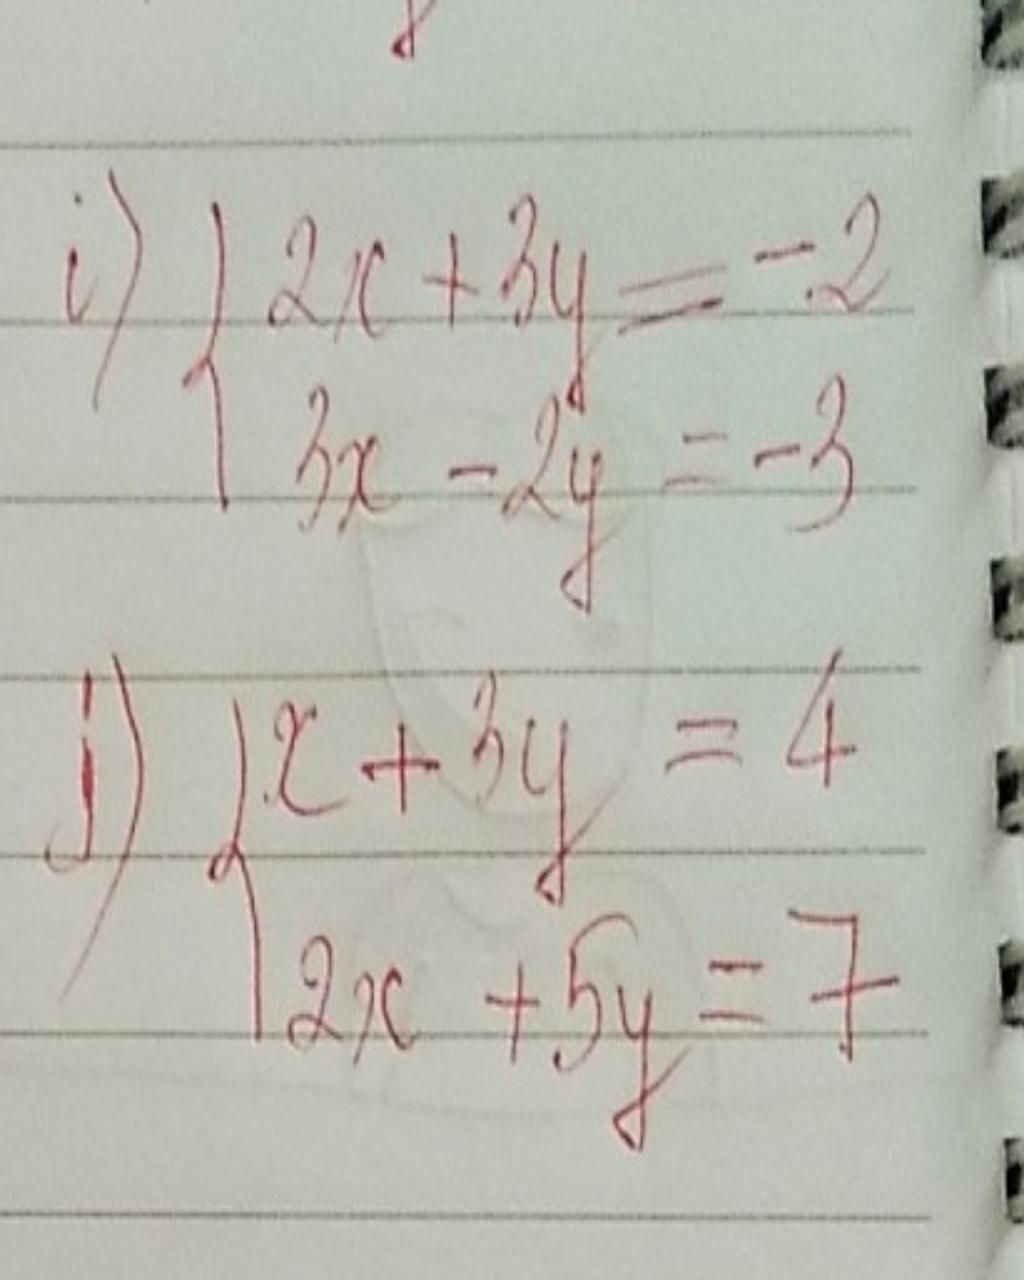 i) { 2x + 3y = -2
3x - 2y = -3
j) { x + 3y = 4
2x + 5y = 7